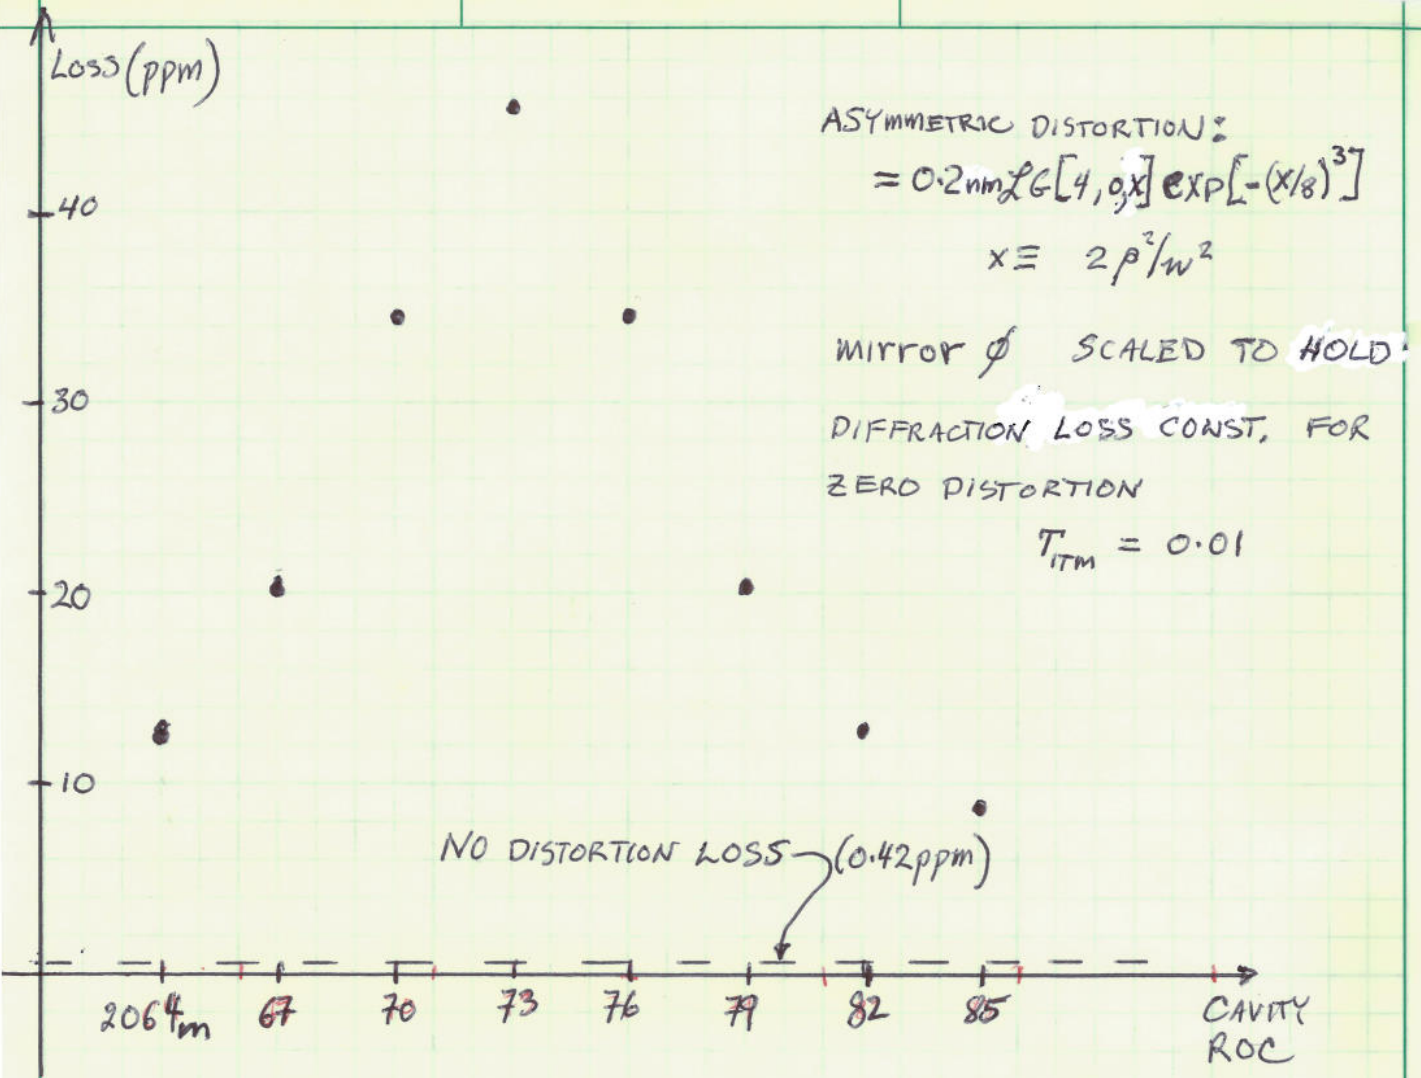 Loss (ppm)
ASYMMETRIC DISTORTION:
= 0.2nm LG[4,0,x] exp[-(x/8)³]
x ≡ 2ρ²/w²
40
mirror ϕ SCALED TO HOLD
30
DIFFRACTION LOSS CONST. FOR
ZERO DISTORTION
T_ITM = 0.01
20
10
NO DISTORTION LOSS (0.42ppm)
2064m 67 70 73 76 79 82 85 CAVITY
ROC